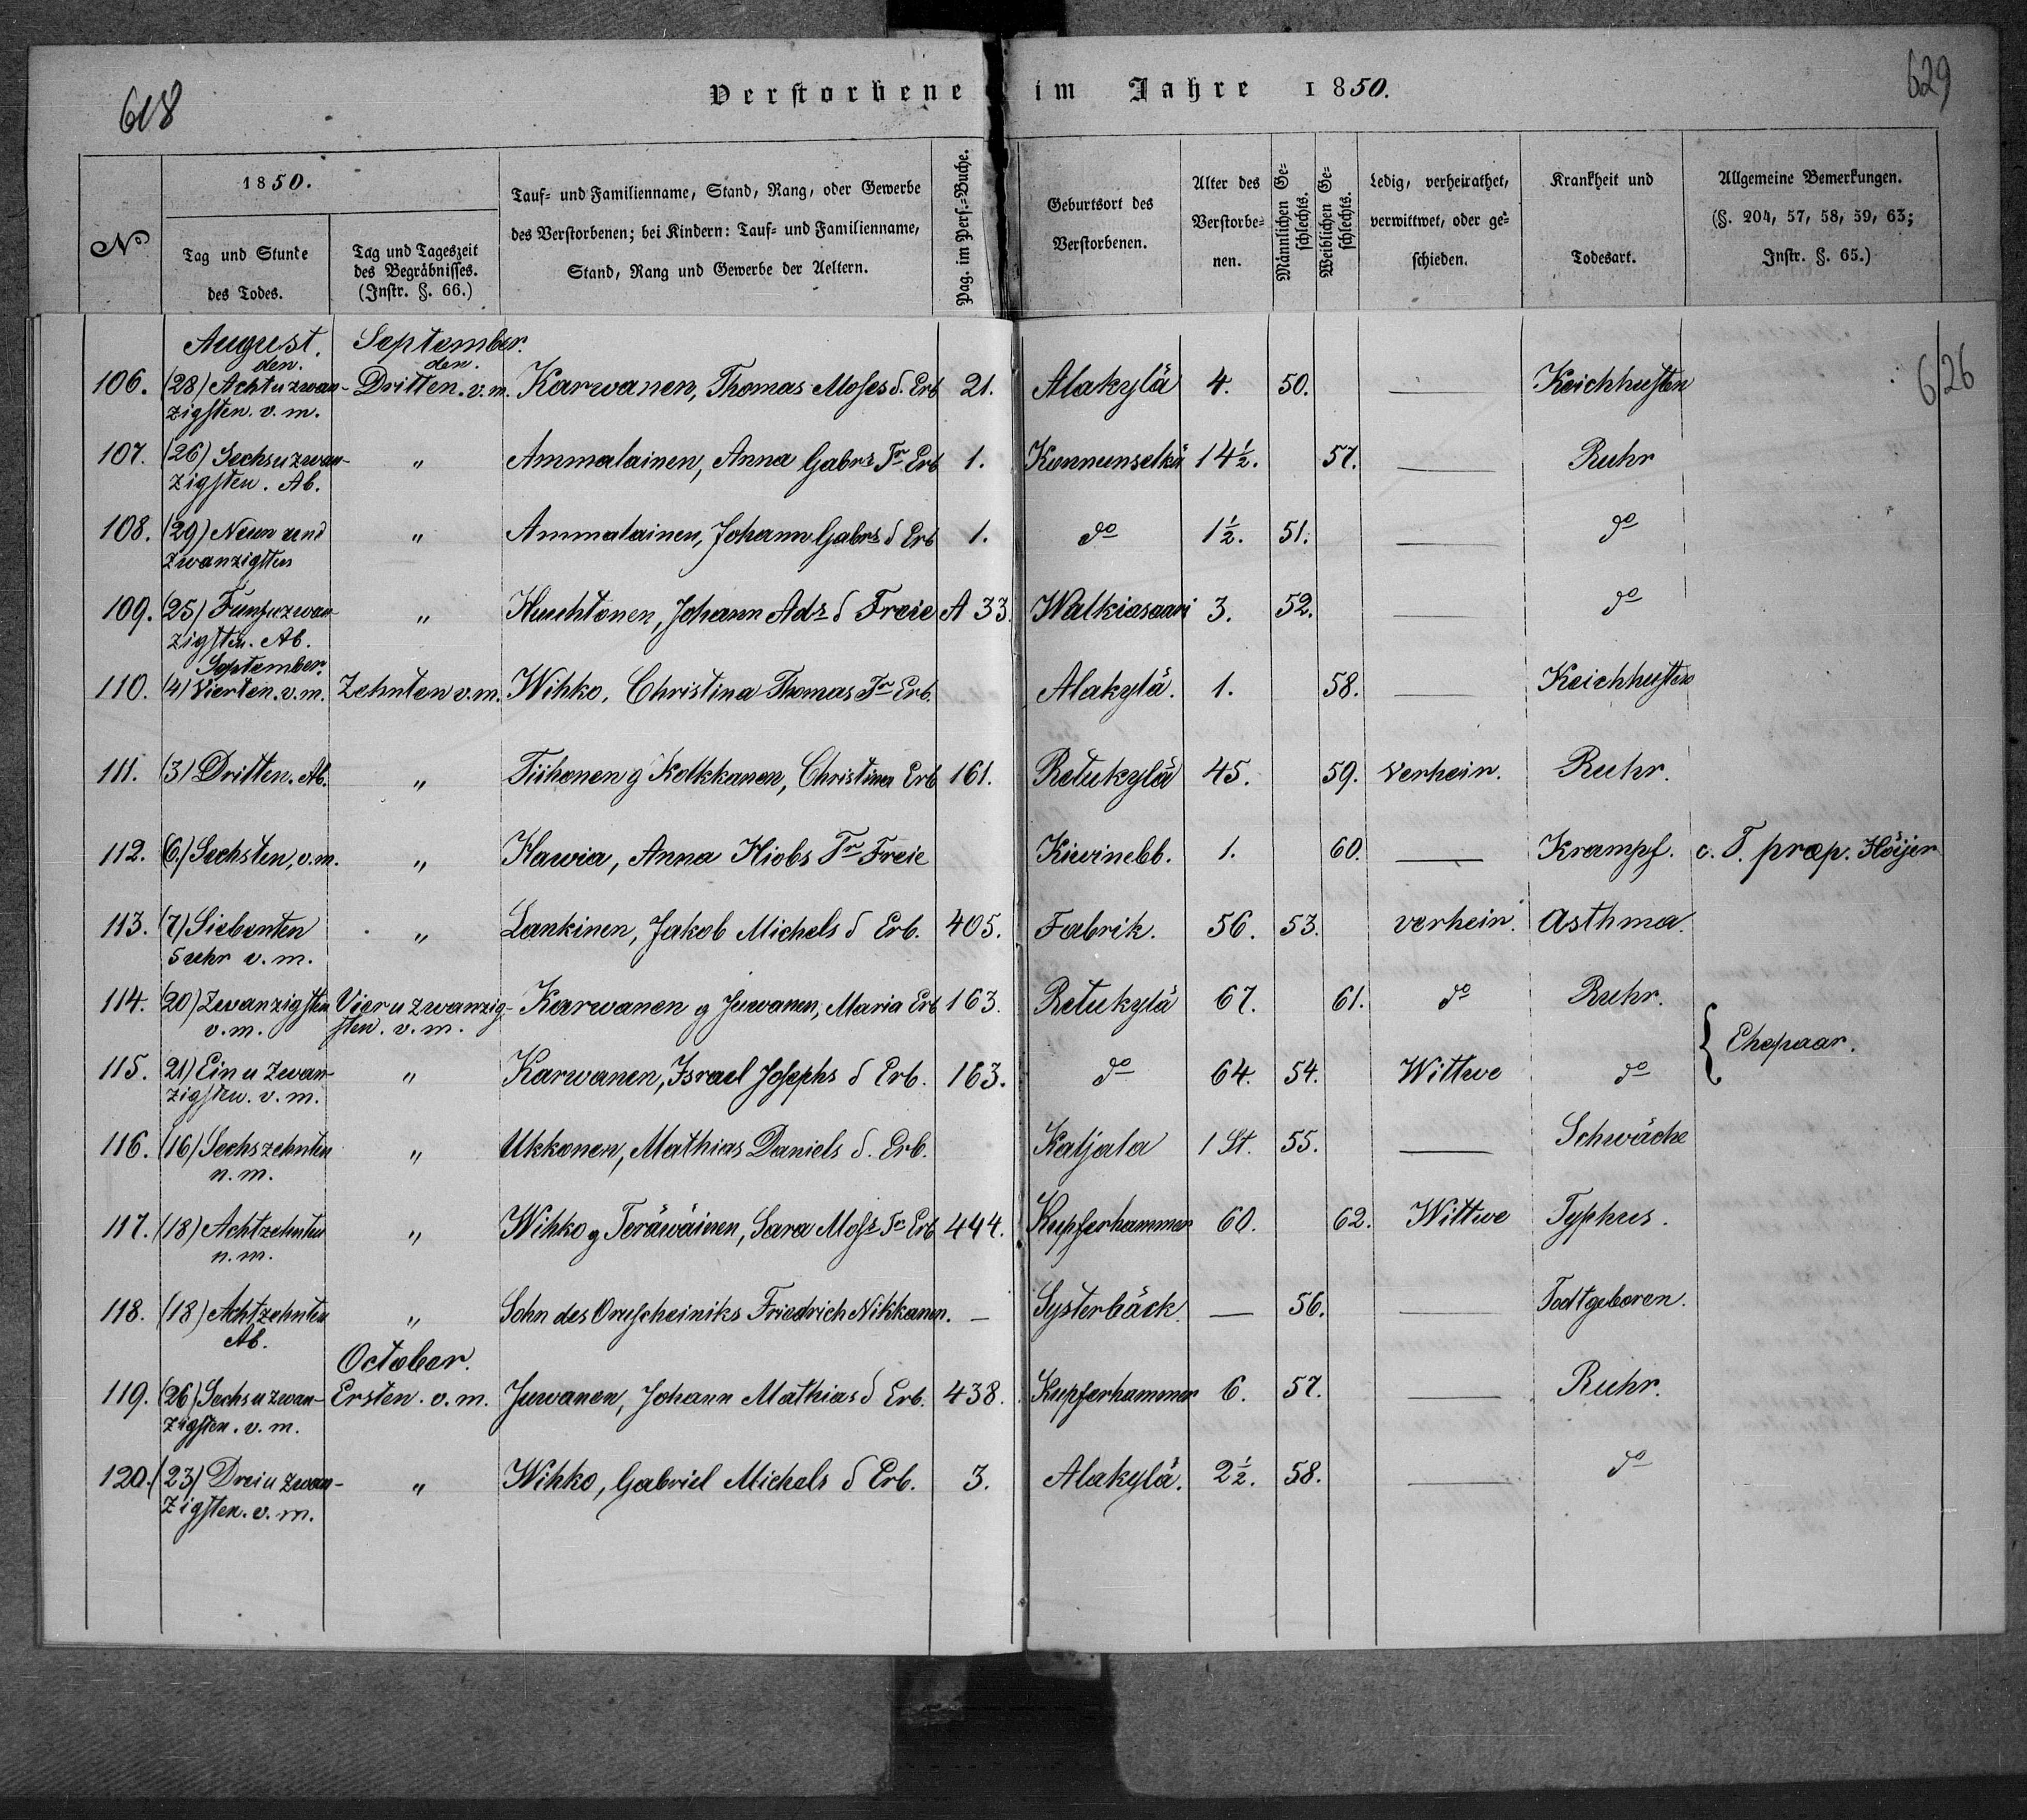 618
Verstorbene im Jahre 1850.
629
No
1850.
Tag und Stunde des Todes.
Tag und Tageszeit des Begräbnisses. (Instr. §. 66.)
Tauf- und Familienname, Stand, Rang, oder Gewerbe des Verstorbenen; bei Kindern: Tauf- und Familienname, Stand, Rang und Gewerbe der Aeltern.
Pag. im Pers.-Buche.
Geburtsort des Verstorbenen.
Alter des Verstorbe- nen.
Männlichen Ge- schlechts.
Weiblichen Ge- schlechts.
Ledig, verheirathet, verwittwet, oder ge- schieden.
Krankheit und Todesart.
Allgemeine Bemerkungen. (§. 204, 57, 58, 59, 63; Instr. §. 65.)
August. September.
den. den.
106. (28) Acht u zwan- Dritten. v. m. Karwanen, Thomas Moses d. Erb 21. Alakylä 4. 50. — Keichhusten 626
zigsten. v. m.
107. (26) Sechs u zwan- " Ammalainen, Anna Gabrs Tr Erb 1. Konnunselkä 14½. 57. — Ruhr
zigsten. Ab.
108. (29) Neun und " Ammalainen, Johann Gabrs d Erb 1. do 1½. 51. — do
zwanzigsten
109. (25) Funf u zwan- " Huuhtonen, Johann Ads d Freie A 33. Walkiasaari 3. 52. — do
zigsten. Ab.
September.
110. (4) Vierten. v. m. Zehnten v. m. Wihko, Christina Thomas Tr Erb. Alakylä. 1. 58. — Keichhusten
111. (3) Dritten. Ab. " Tiihonen g Kolkkanen, Christina Erb 161. Retukylä 45. 59. Verheir. Ruhr.
112. (6.) Sechsten, v. m. " Hawia, Anna Hiobs Tr Freie Kiwinebb. 1. 60. — Krampf. c. T. præp. Höijer
113. (7) Siebenten " Lankinen, Jakob Michels d Erb. 405. Fabrik. 56. 53. verheir. Asthma.
5 uhr v. m.
114. (20) Zwanzigsten Vier u zwanzig- Karwanen g Juwanen, Maria Erb 163. Retukylä 67. 61. do Ruhr.
v. m. sten. v. m.
Ehepaar.
115. 21) Ein u zwan- " Karwanen, Israel Josephs d Erb. 163. do 64. 54. Wittwe do
zigsten. v. m.
116. (16) Sechszehnten " Ukkonen, Mathias Daniels d. Erb. Katjala 1 St. 55. — Schwäche
n. m.
117. (18) Achtzehnten " Wihko g Teräwäinen, Sara Moss Tr Erb 444. Kupferhammer 60. 62. Wittwe Typhus.
n. m.
118. (18) Achtzehnten " Sohn des Oruscheiniks Friedrich Nikkanen. — Systerbäck. — 56. — Todtgeboren.
Ab.
October.
119. (26) Sechs u zwan- Ersten. v. m. Juwanen, Johann Mathias d Erb. 438. Kupferhammer 6. 57. — Ruhr.
zigsten. v. m.
120. (23) Drei u zwan- " Wihko, Gabriel Michels d Erb. 3. Alakylä. 2½. 58. — do
zigsten. v. m.